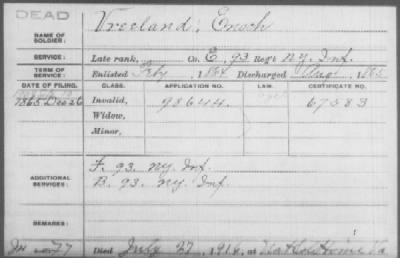 DEAD
NAME OF SOLDIER: Vreeland, Enoch
SERVICE: Late rank, Co. E, 93 Reg't N.Y. Inf.
TERM OF SERVICE: Enlisted Feby 1864 Discharged Aug 1865
DATE OF FILING. CLASS. APPLICATION NO. LAW. CERTIFICATE NO.
1865 Dec 26 Invalid, 98644 67583
Widow,
Minor,
ADDITIONAL SERVICES: F. 93. N.Y. Inf.
B. 93. N.Y. Inf.
REMARKS:
77 Died July 27, 1916, at Nat Sol Home Va